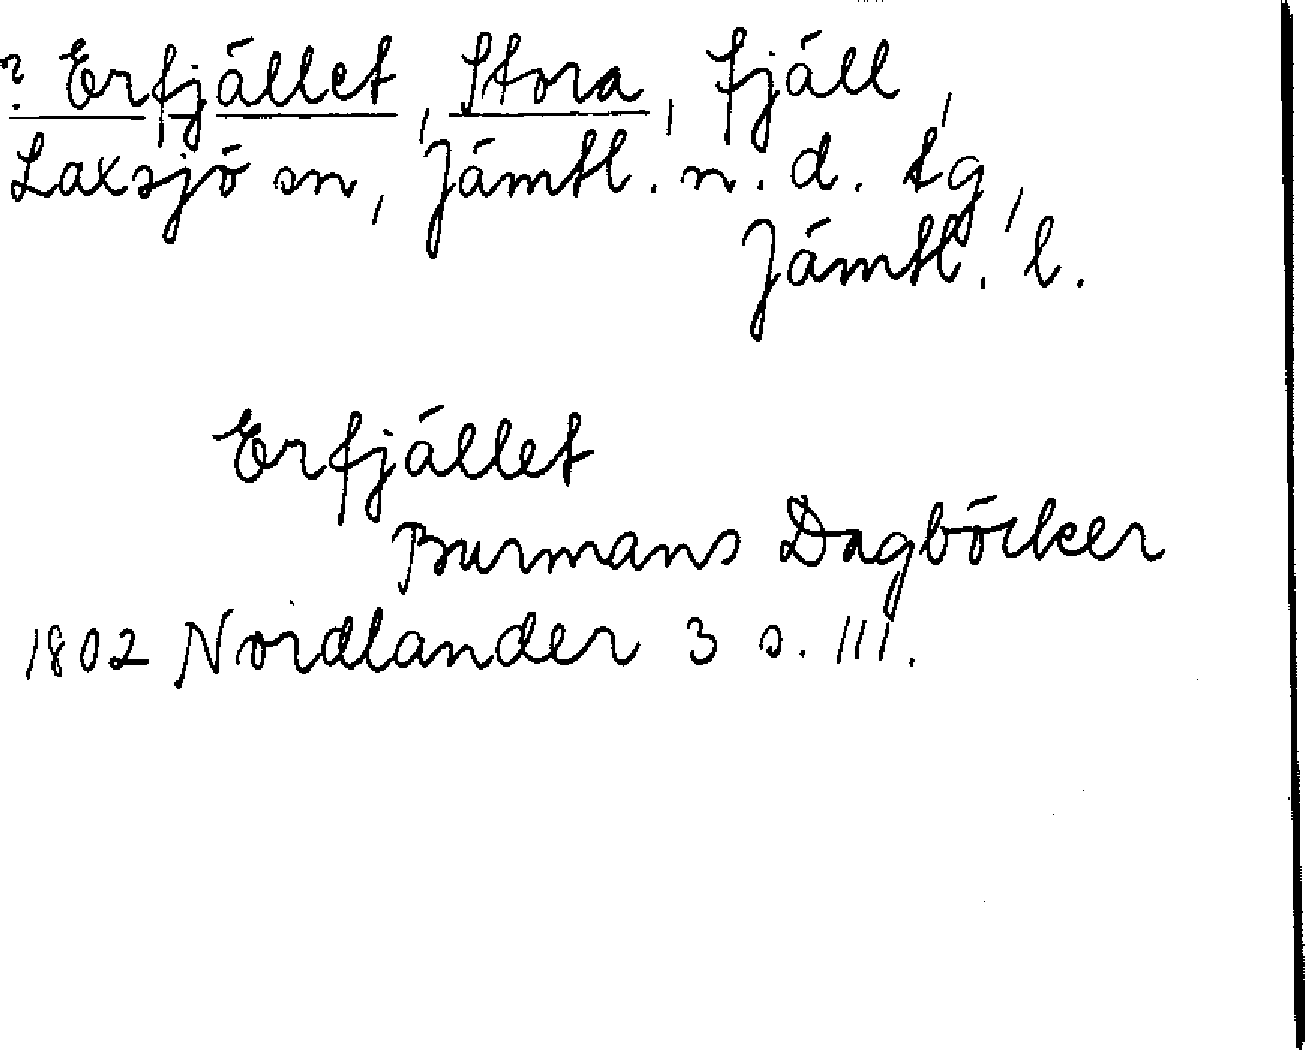 ? Erfjället, Stora, fjäll,
Laxsjö sn, Jämtl. n. d. tg,
Jämtl. l.
Erfjället
Burmans Dagböcker
1802 Nordlander 3 s. 111.